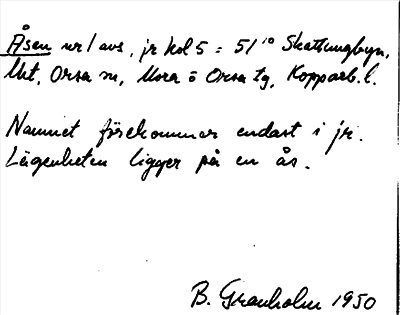 Åsen ur/avs, jr kol 5 = 51¹⁰ Skattungbyn,
Orsa sn, Mora o Orsa tg, Kopparb. l.
Namnet förekommer endast i jr.
Lägenheten ligger på en ås.
B. Granholm 1950